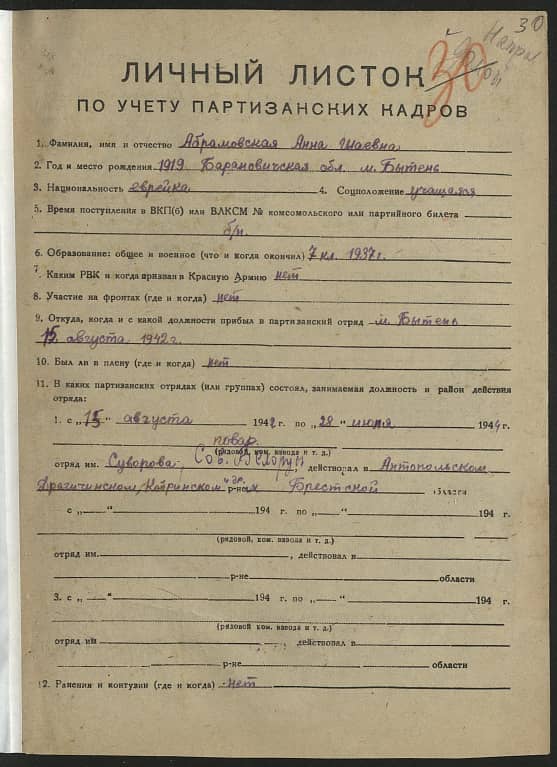 30
30
ЛИЧНЫЙ ЛИСТОК
ПО УЧЕТУ ПАРТИЗАНСКИХ КАДРОВ
1. Фамилия, имя и отчество Абрамовская Анна
2. Год и место рождения 1919 Барановичская обл. м. Бытень
3. Национальность еврейка 4. Соцположение учащаяся
5. Время поступления в ВКП(б) или ВЛКСМ № комсомольского или партийного билета
б/п.
6. Образование: общее и военное (что и когда окончил) 7 кл. 1937г.
7. Каким РВК и когда призван в Красную Армию нет
8. Участие на фронтах (где и когда) нет
9. Откуда, когда и с какой должности прибыл в партизанский отряд м. Бытень
15 августа 1942 г.
10. Был ли в плену (где и когда) нет
11. В каких партизанских отрядах (или группах) состоял, занимаемая должность и район действия
отряда:
1. с „15“ августа 1942 г. по „28“ июля 1944 г.
повар
(рядовой, ком. взвода и т. д.)
отряд им. Суворова, Сов. Белорус действовал в Антопольском
Дрогичинском, Кобринском и др. р-нах Брестской области
с „—“ 194 г. по „—“ 194 г.
(рядовой, ком. взвода и т. д.)
отряд им. , действовал в
р-не области
3. с „—“ 194 г. по „—“ 194 г.
(рядовой ком. взвода и т. д.)
отряд им , действовал в
р-не области
12. Ранения и контузии (где и когда) нет